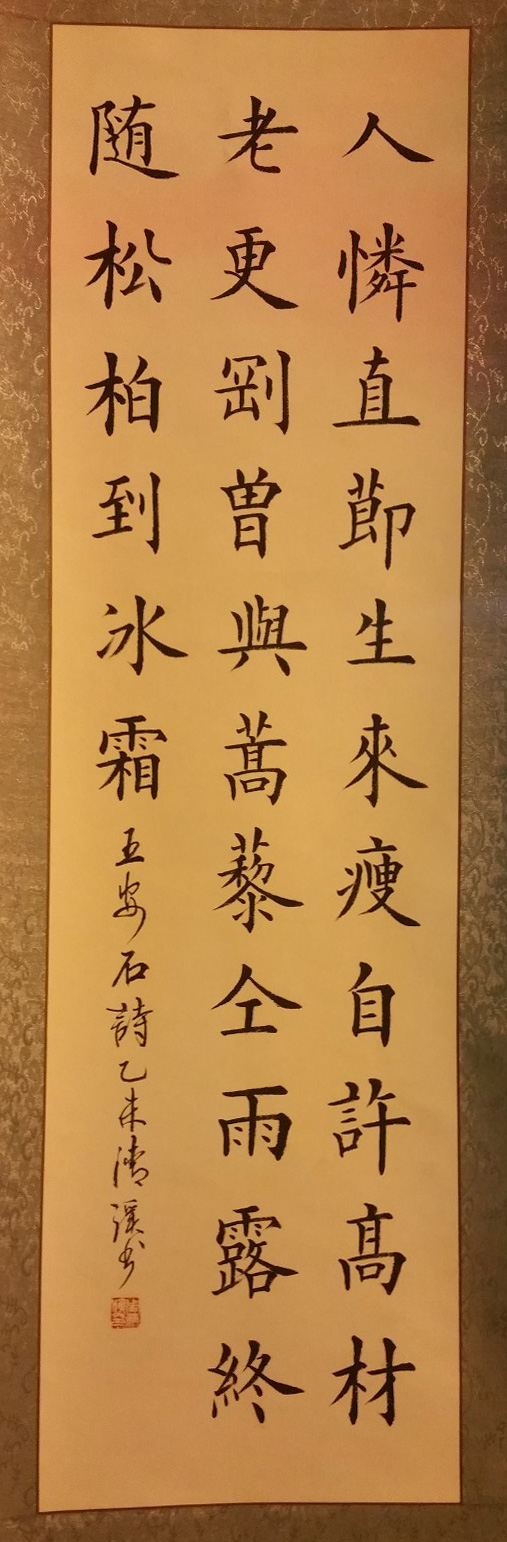 人憐直節生來瘦自許高材
老更剛曾與蒿藜仝雨露終
随松柏到冰霜
王安石詩乙未清溪书